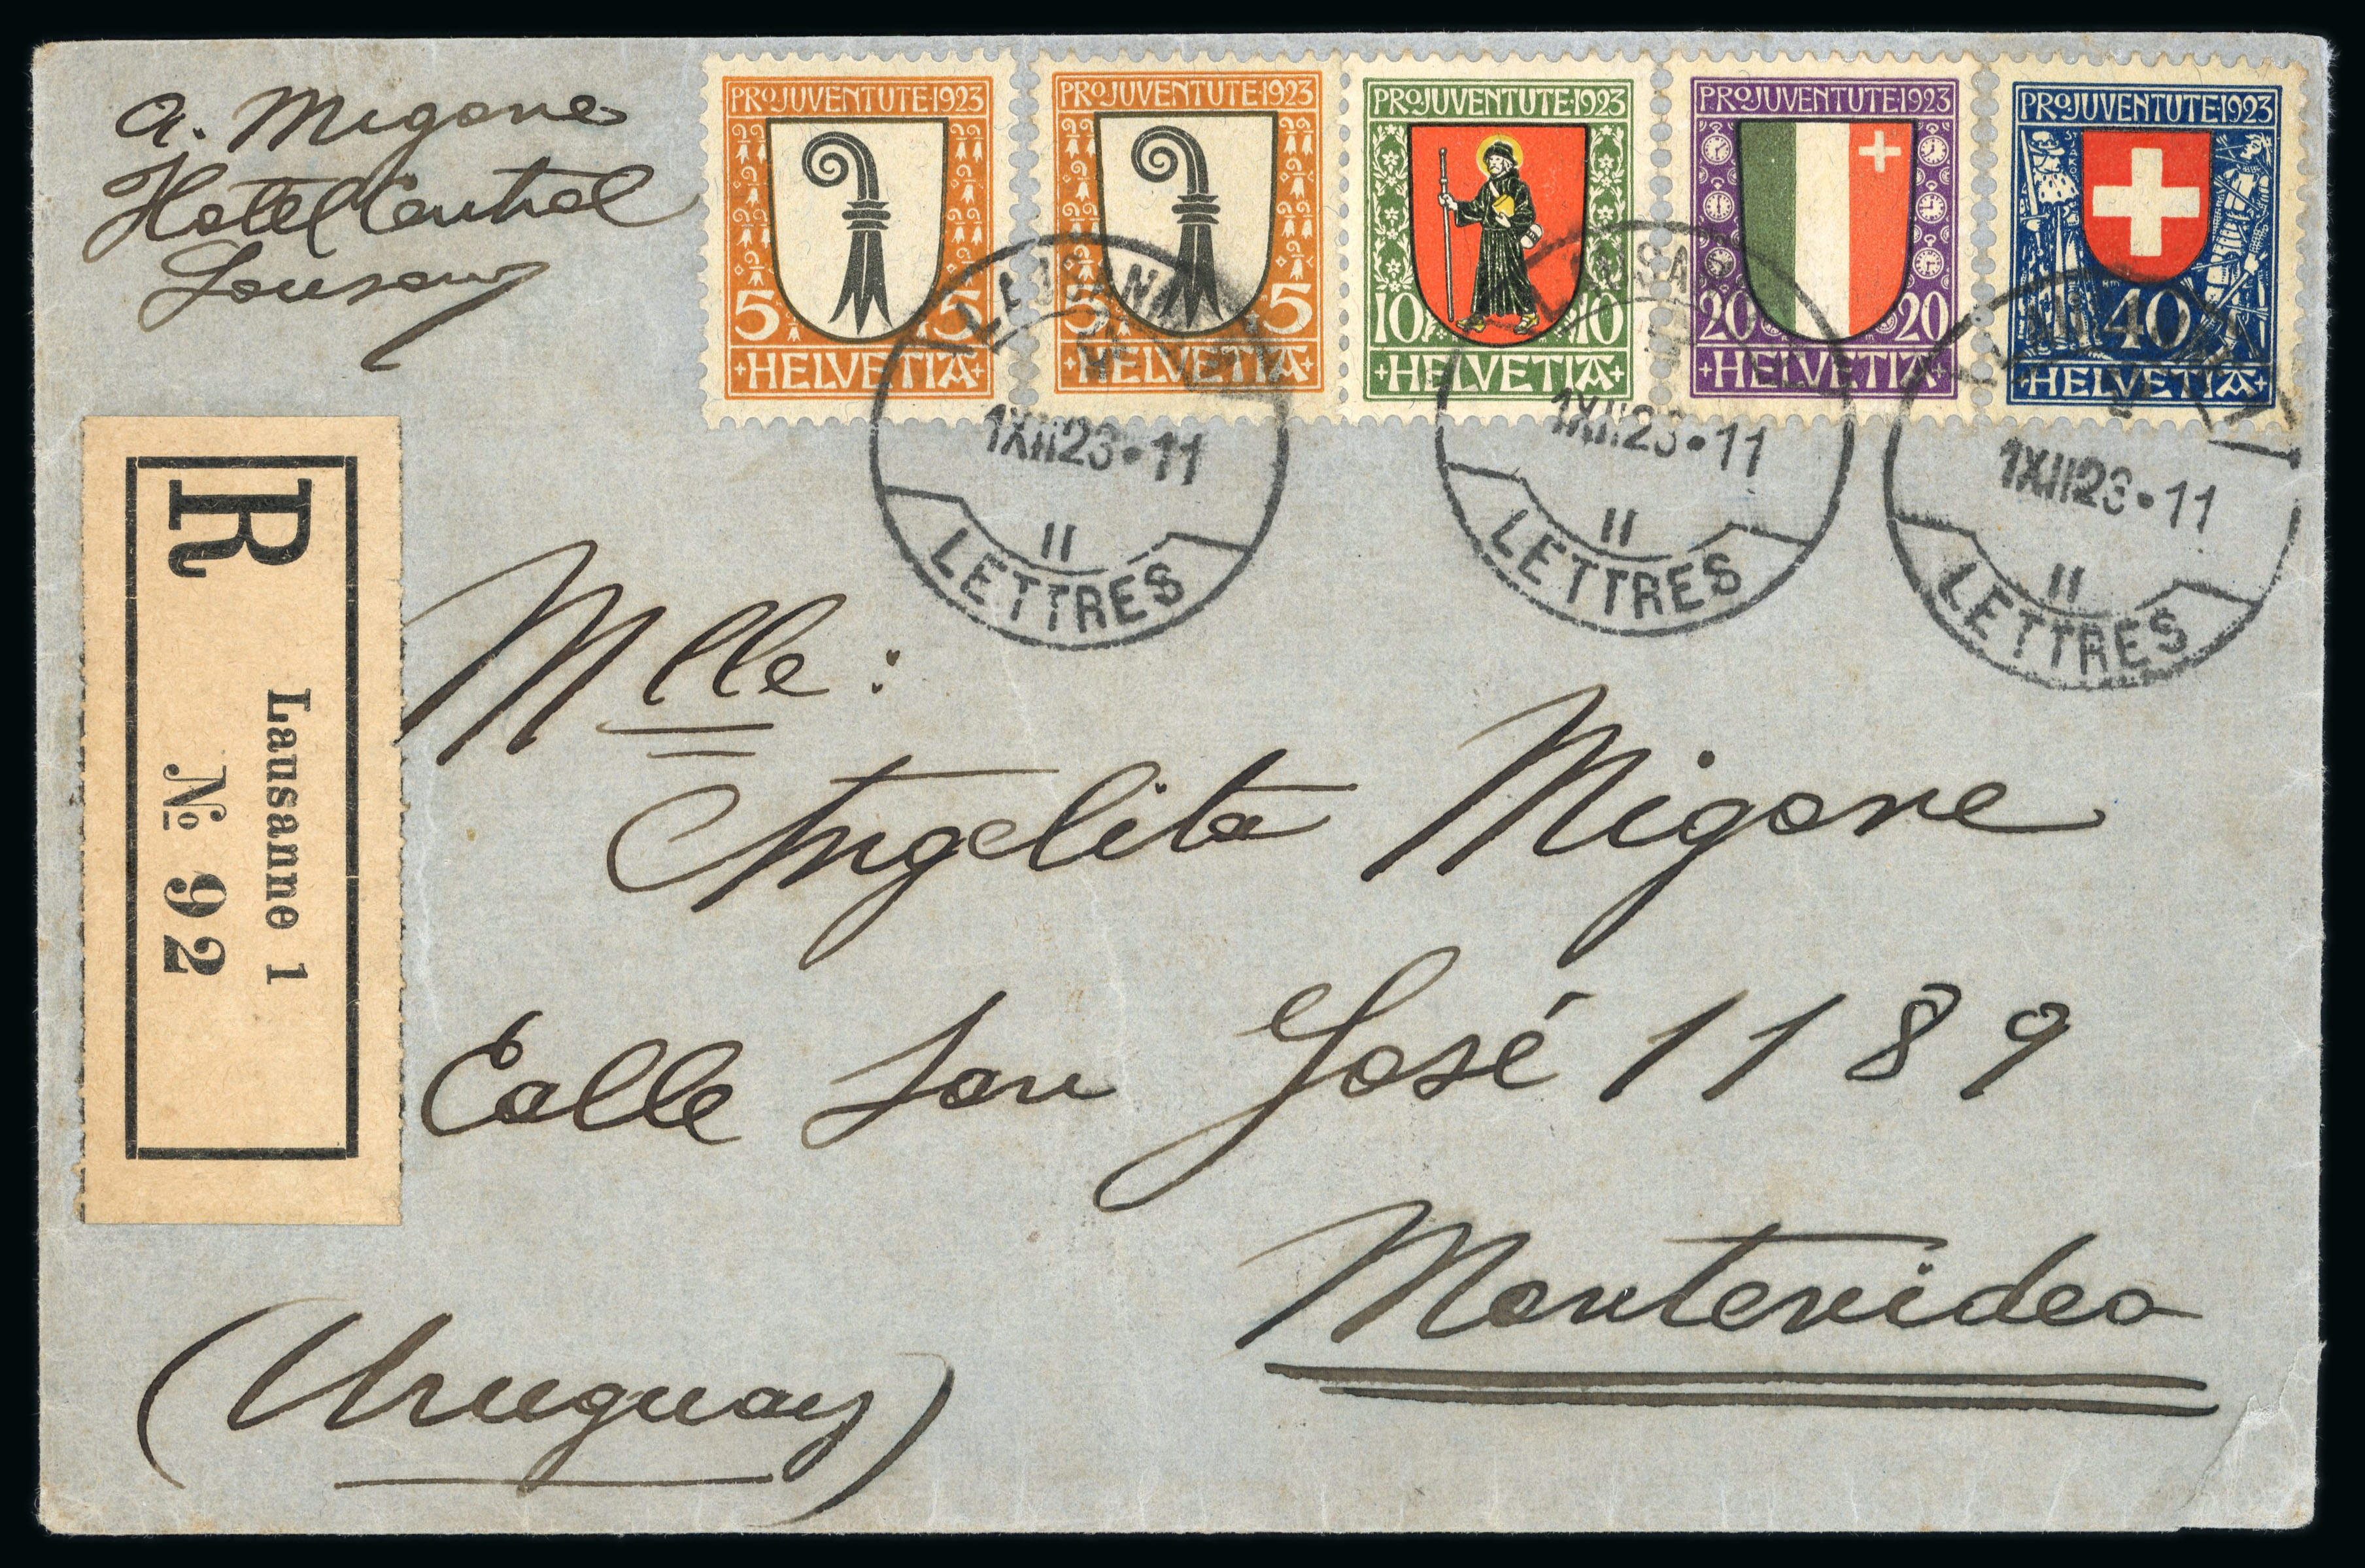 a. Migone
Hotel Central
Lausanne
PRO JUVENTUTE·1923
5 5
+HELVETIA+
PRO JUVENTUTE·1923
5 5
+HELVETIA+
PRO JUVENTUTE·1923
10 10
+HELVETIA+
PRO JUVENTUTE 1923
20 20
+HELVETIA+
PRO JUVENTUTE·1923
40
+HELVETIA+
LAUSANNE
1XII23·11
II
LETTRES
LAUSANNE
1XII23·11
II
LETTRES
LAUSANNE
1XII23·11
II
LETTRES
R
Lausanne 1
№ 92
Mlle:
Angelita Migone
Calle San José 1189
Montevideo
(Uruguay)